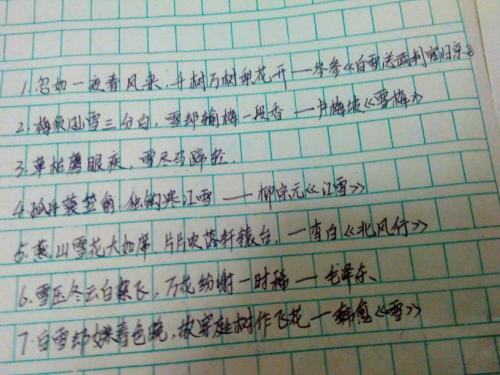 1.忽如一夜春风来.千树万树梨花开——岑参《白雪送武判官归京》
2.梅须逊雪三分白.雪却输梅一段香——卢梅坡《雪梅》
3.草枯鹰眼疾,雪尽马蹄轻.
4.孤舟蓑笠翁.独钓寒江雪——柳宗元《江雪》
5.燕山雪花大如席.片片吹落轩辕台.——李白《北风行》
6.雪压冬云白絮飞,万花纷谢一时稀——毛泽东.
7.白雪却嫌春色晚,故穿庭树作飞花——韩愈《雪》